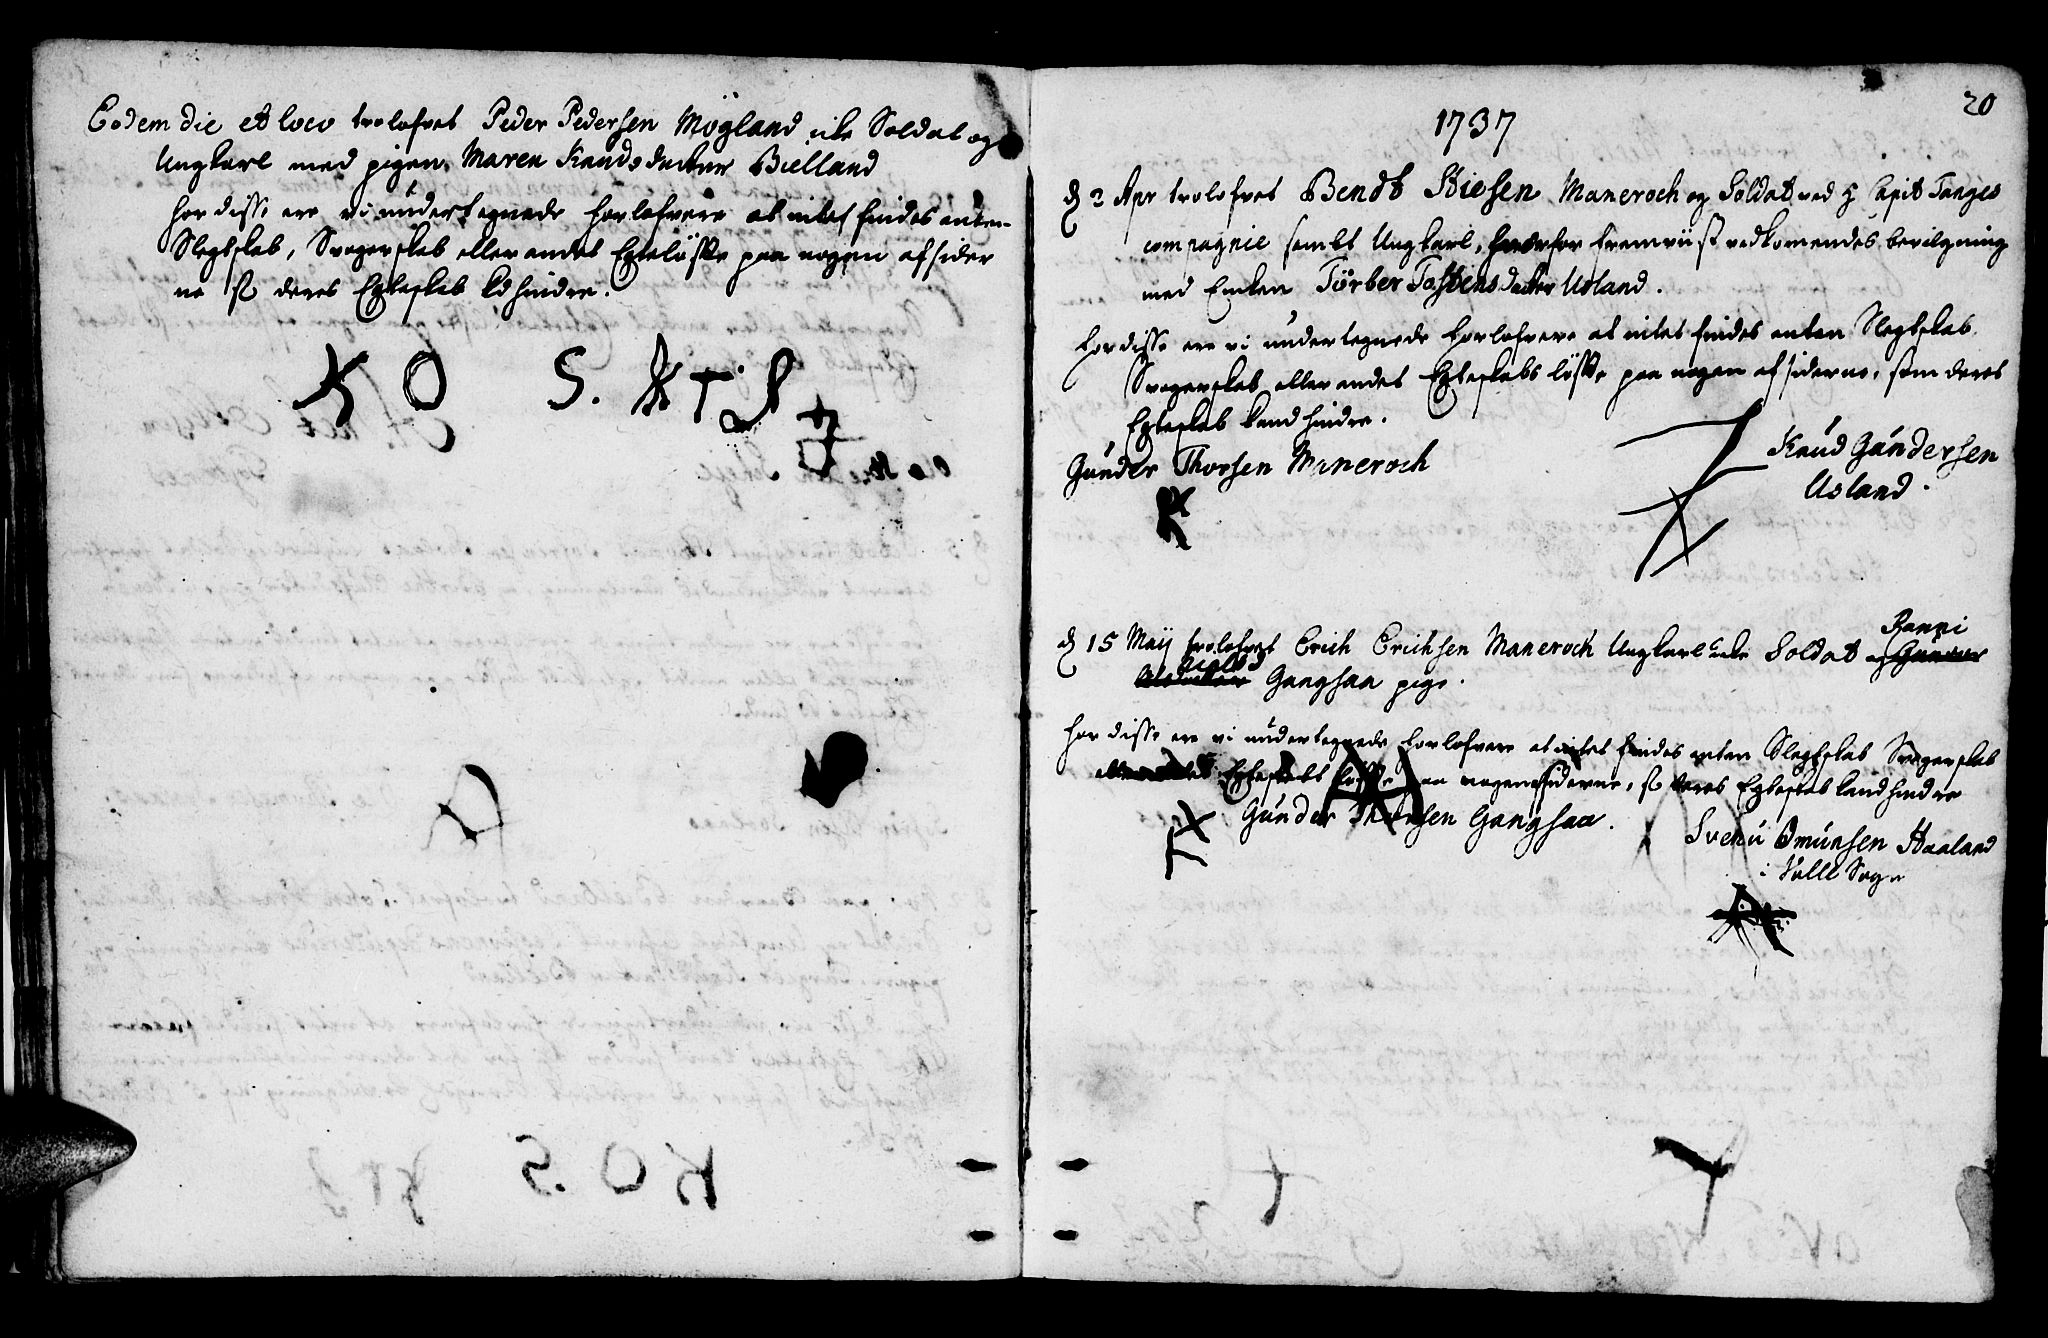 Eodem die et loco trolofvet Peder Pedersen Mögland icke Soldat og
Ungkarl med pigen Maren Knudsdatter Bielland
for disse ere vi undertegnede forlofvere at intet findes enten
Slegtskab, Svogerskab eller andet Egteløfte paa nogen af sider
ne som deres Egteskab kand hindre.
K O S. K T S
20
1737
d 2 Apr trolofvet Bendt Stiesen Maneroch og Soldat ved H Capit Tanges
compagnie sambt Ungkarl, hvorfor fremviist vedkomendes bevilgning
med Enken Törber Tostensdatter Usland.
for disse ere vi undertegnede forlofvere at intet findes enten Slegtskab
Svogerskab eller andet Egteskabs løfte paa nogen af siderne, som deres
Egteskab kand hindre.
Gunder Thorsen Maneroch
Knud Gundersen
Usland.
d 15 Maij trolofvet Erich Erichsen Maneroch Ungkarl icke Soldat og
Ranni
Gangsaa pige.
for disse ere vi undertegnede forlofvere at intet findes enten Slegtskab Svogerskab
eller andet Egteskabs løfte paa nogen af siderne, som deres Egteskab kand hindre
Gunder Thorsen Gangsaa.
Svenu Omunsen Haaland
i Valle Sogn